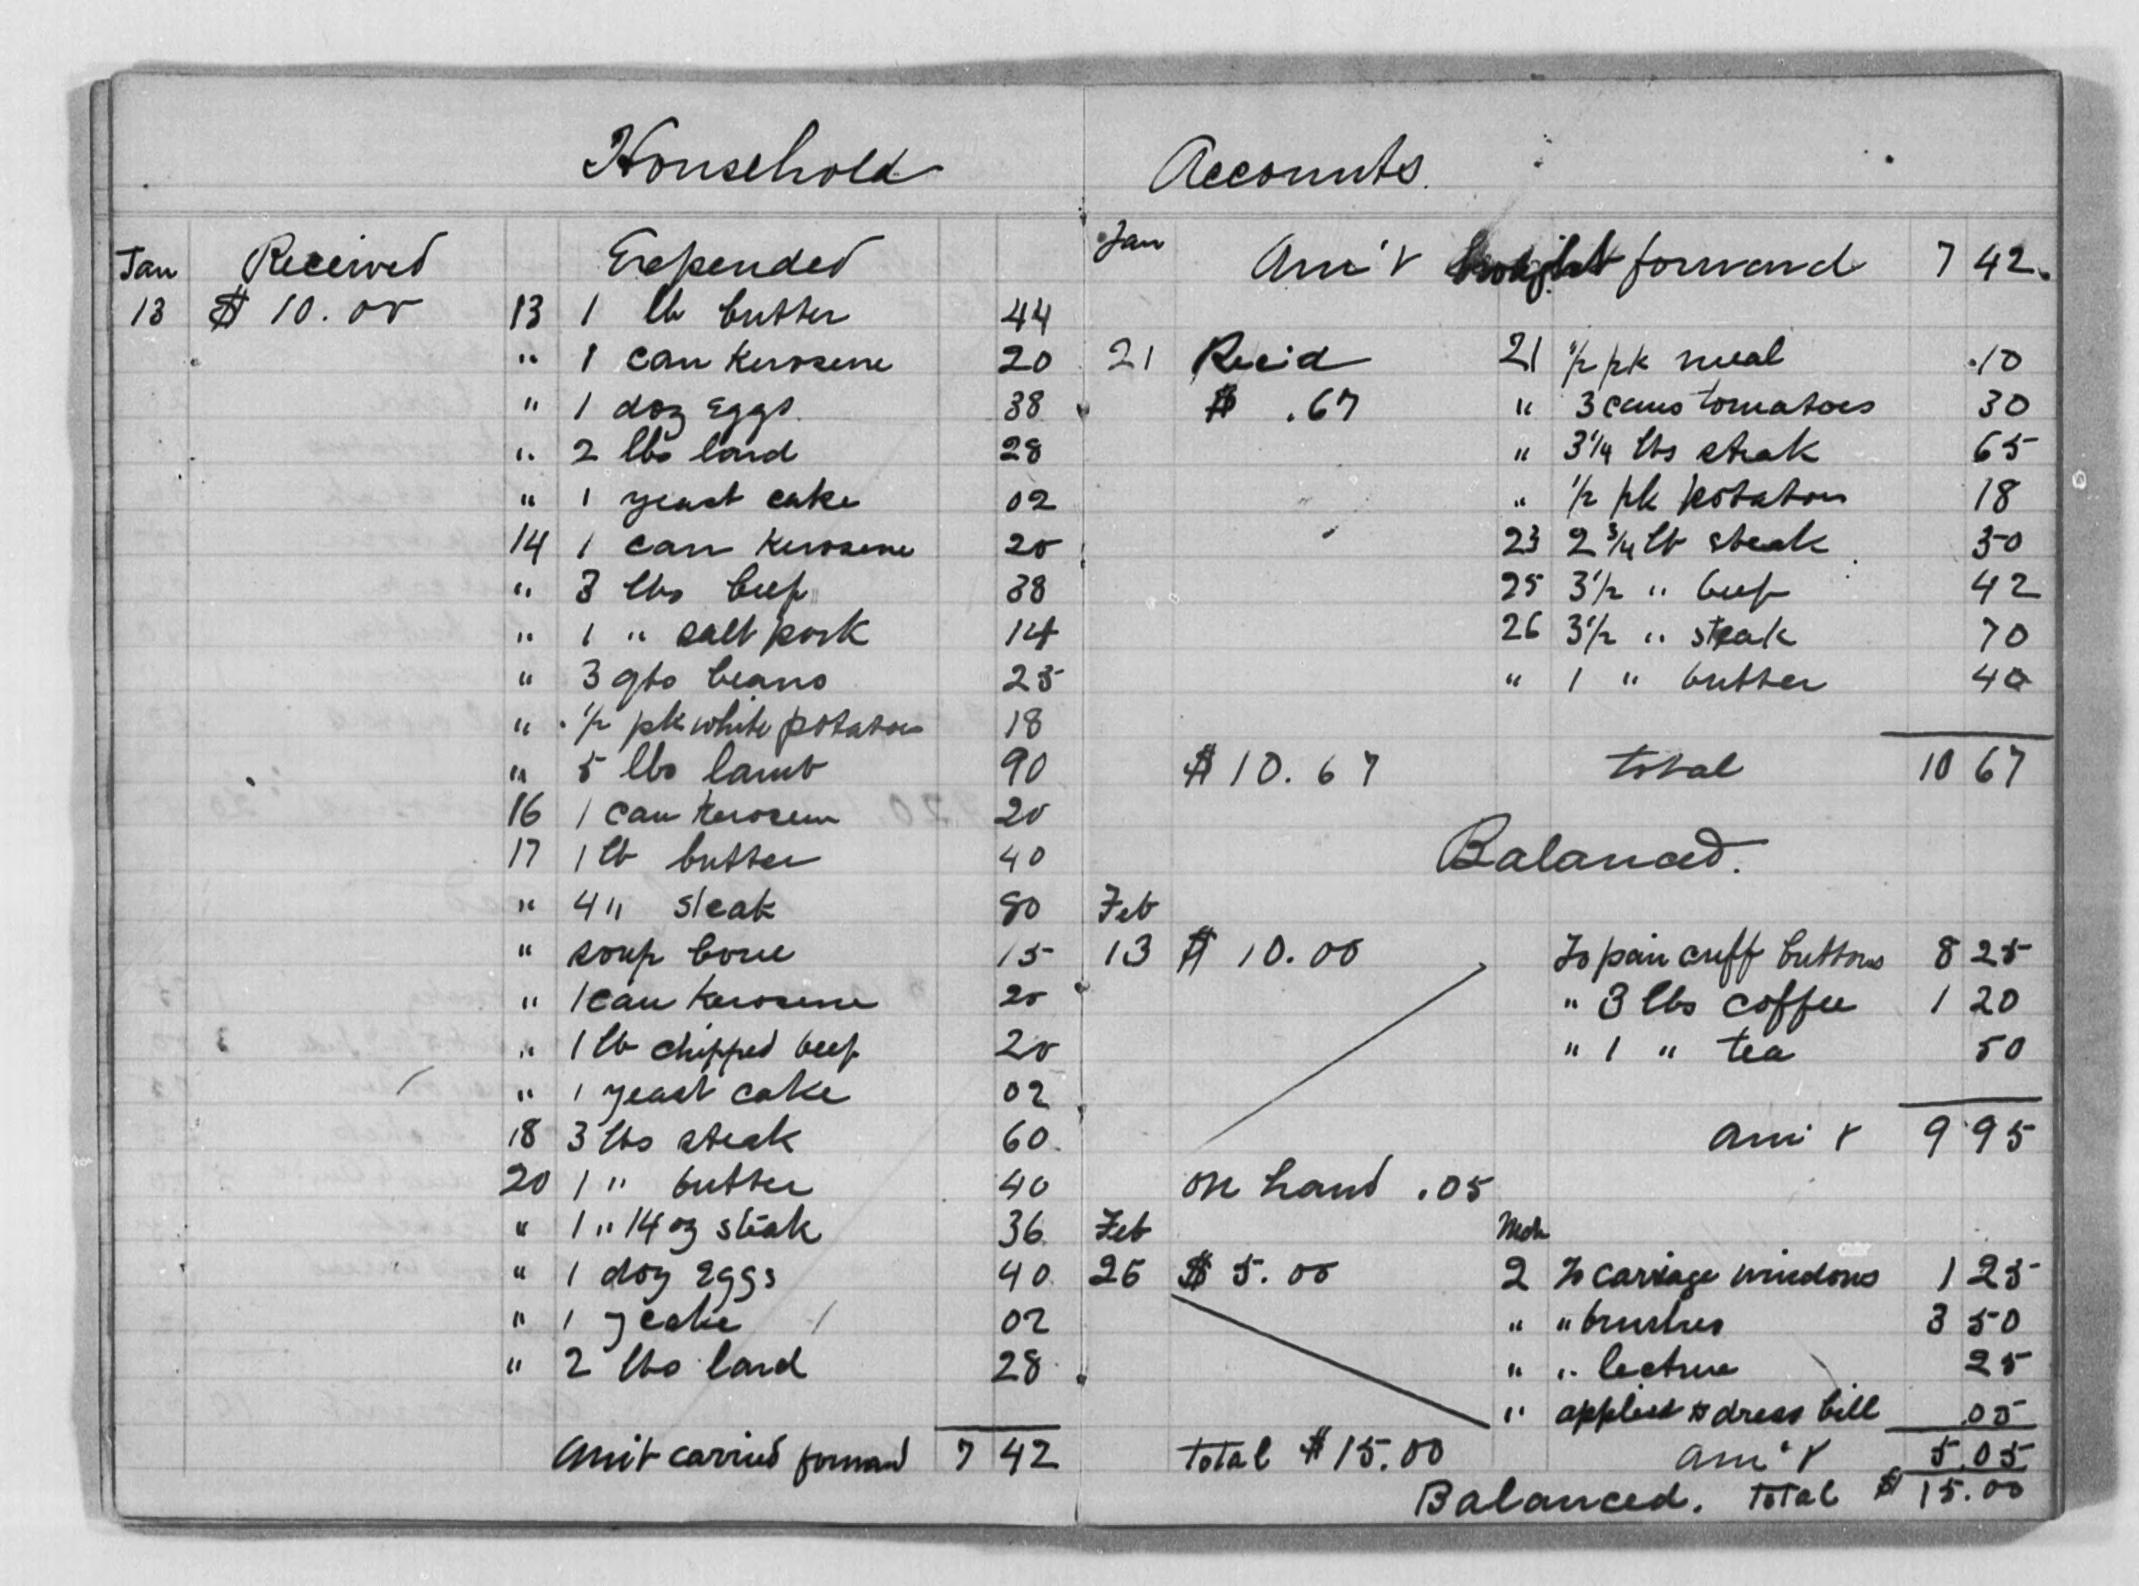 Household Accounts.
Jan Received Expended
13 $ 10.00 13 1 lb butter 44
" 1 can Kerosene 20
" 1 doz Eggs 38
" 2 lbs lard 28
" 1 yeast cake 02
14 1 can Kerosene 20
" 3 lbs beef 38
" 1 " salt pork 14
" 3 qts beans 25
" 1/2 pk white potatoes 18
" 5 lbs lamb 90
16 1 can Kerosene 20
17 1 lb butter 40
" 4 " steak 80
" soup bone 15
" 1 can Kerosene 20
" 1 lb chipped beef 20
" 1 yeast cake 02
18 3 lbs steak 60
20 1 " butter 40
" 1 " 14 oz steak 36
" 1 doz Eggs 40
" 1 y cake 02
" 2 lbs lard 28
Am't carried forward 7 42
Jan Am't brought forward 7 42
21 Rec'd 21 1/2 pk meal .10
$ .67 " 3 cans tomatoes 30
" 3 1/4 lbs steak 65
" 1/2 pk potatoes 18
23 2 3/4 lb steak 50
25 3 1/2 " beef 42
26 3 1/2 " steak 70
" 1 " butter 40
$ 10.67 total 10 67
Balanced.
Feb
13 $ 10.00 To pair cuff buttons 8 25
" 3 lbs coffee 1 20
" 1 " tea 50
Am't 9 95
on hand .05
Feb Mch
26 $ 5.00 2 To carriage windows 1 25
" " brushes 3 50
" " lecture 25
" applied to dress bill .05
Total $ 15.00 Am't 5.05
Balanced. Total $ 15.00